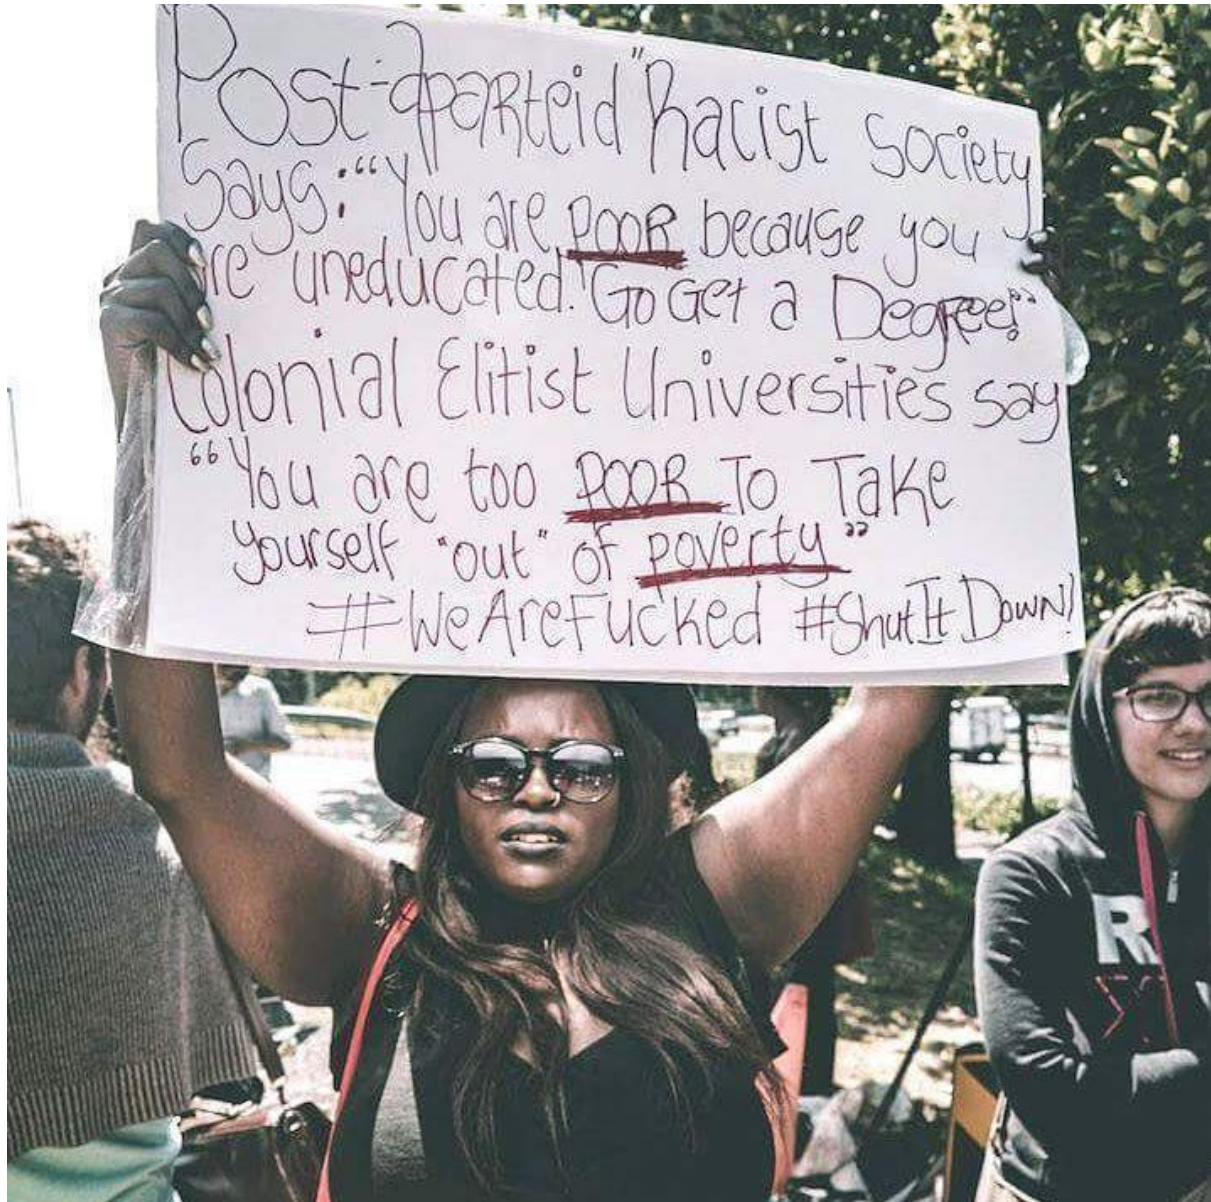 Post-aparteid "Racist society
Says: "You are POOR because you
are uneducated." Go Get a Degree!"
Colonial Elitist Universities say
"You are too POOR To Take
yourself "out" of poverty"
#WeAreFucked #ShutItDown!
R